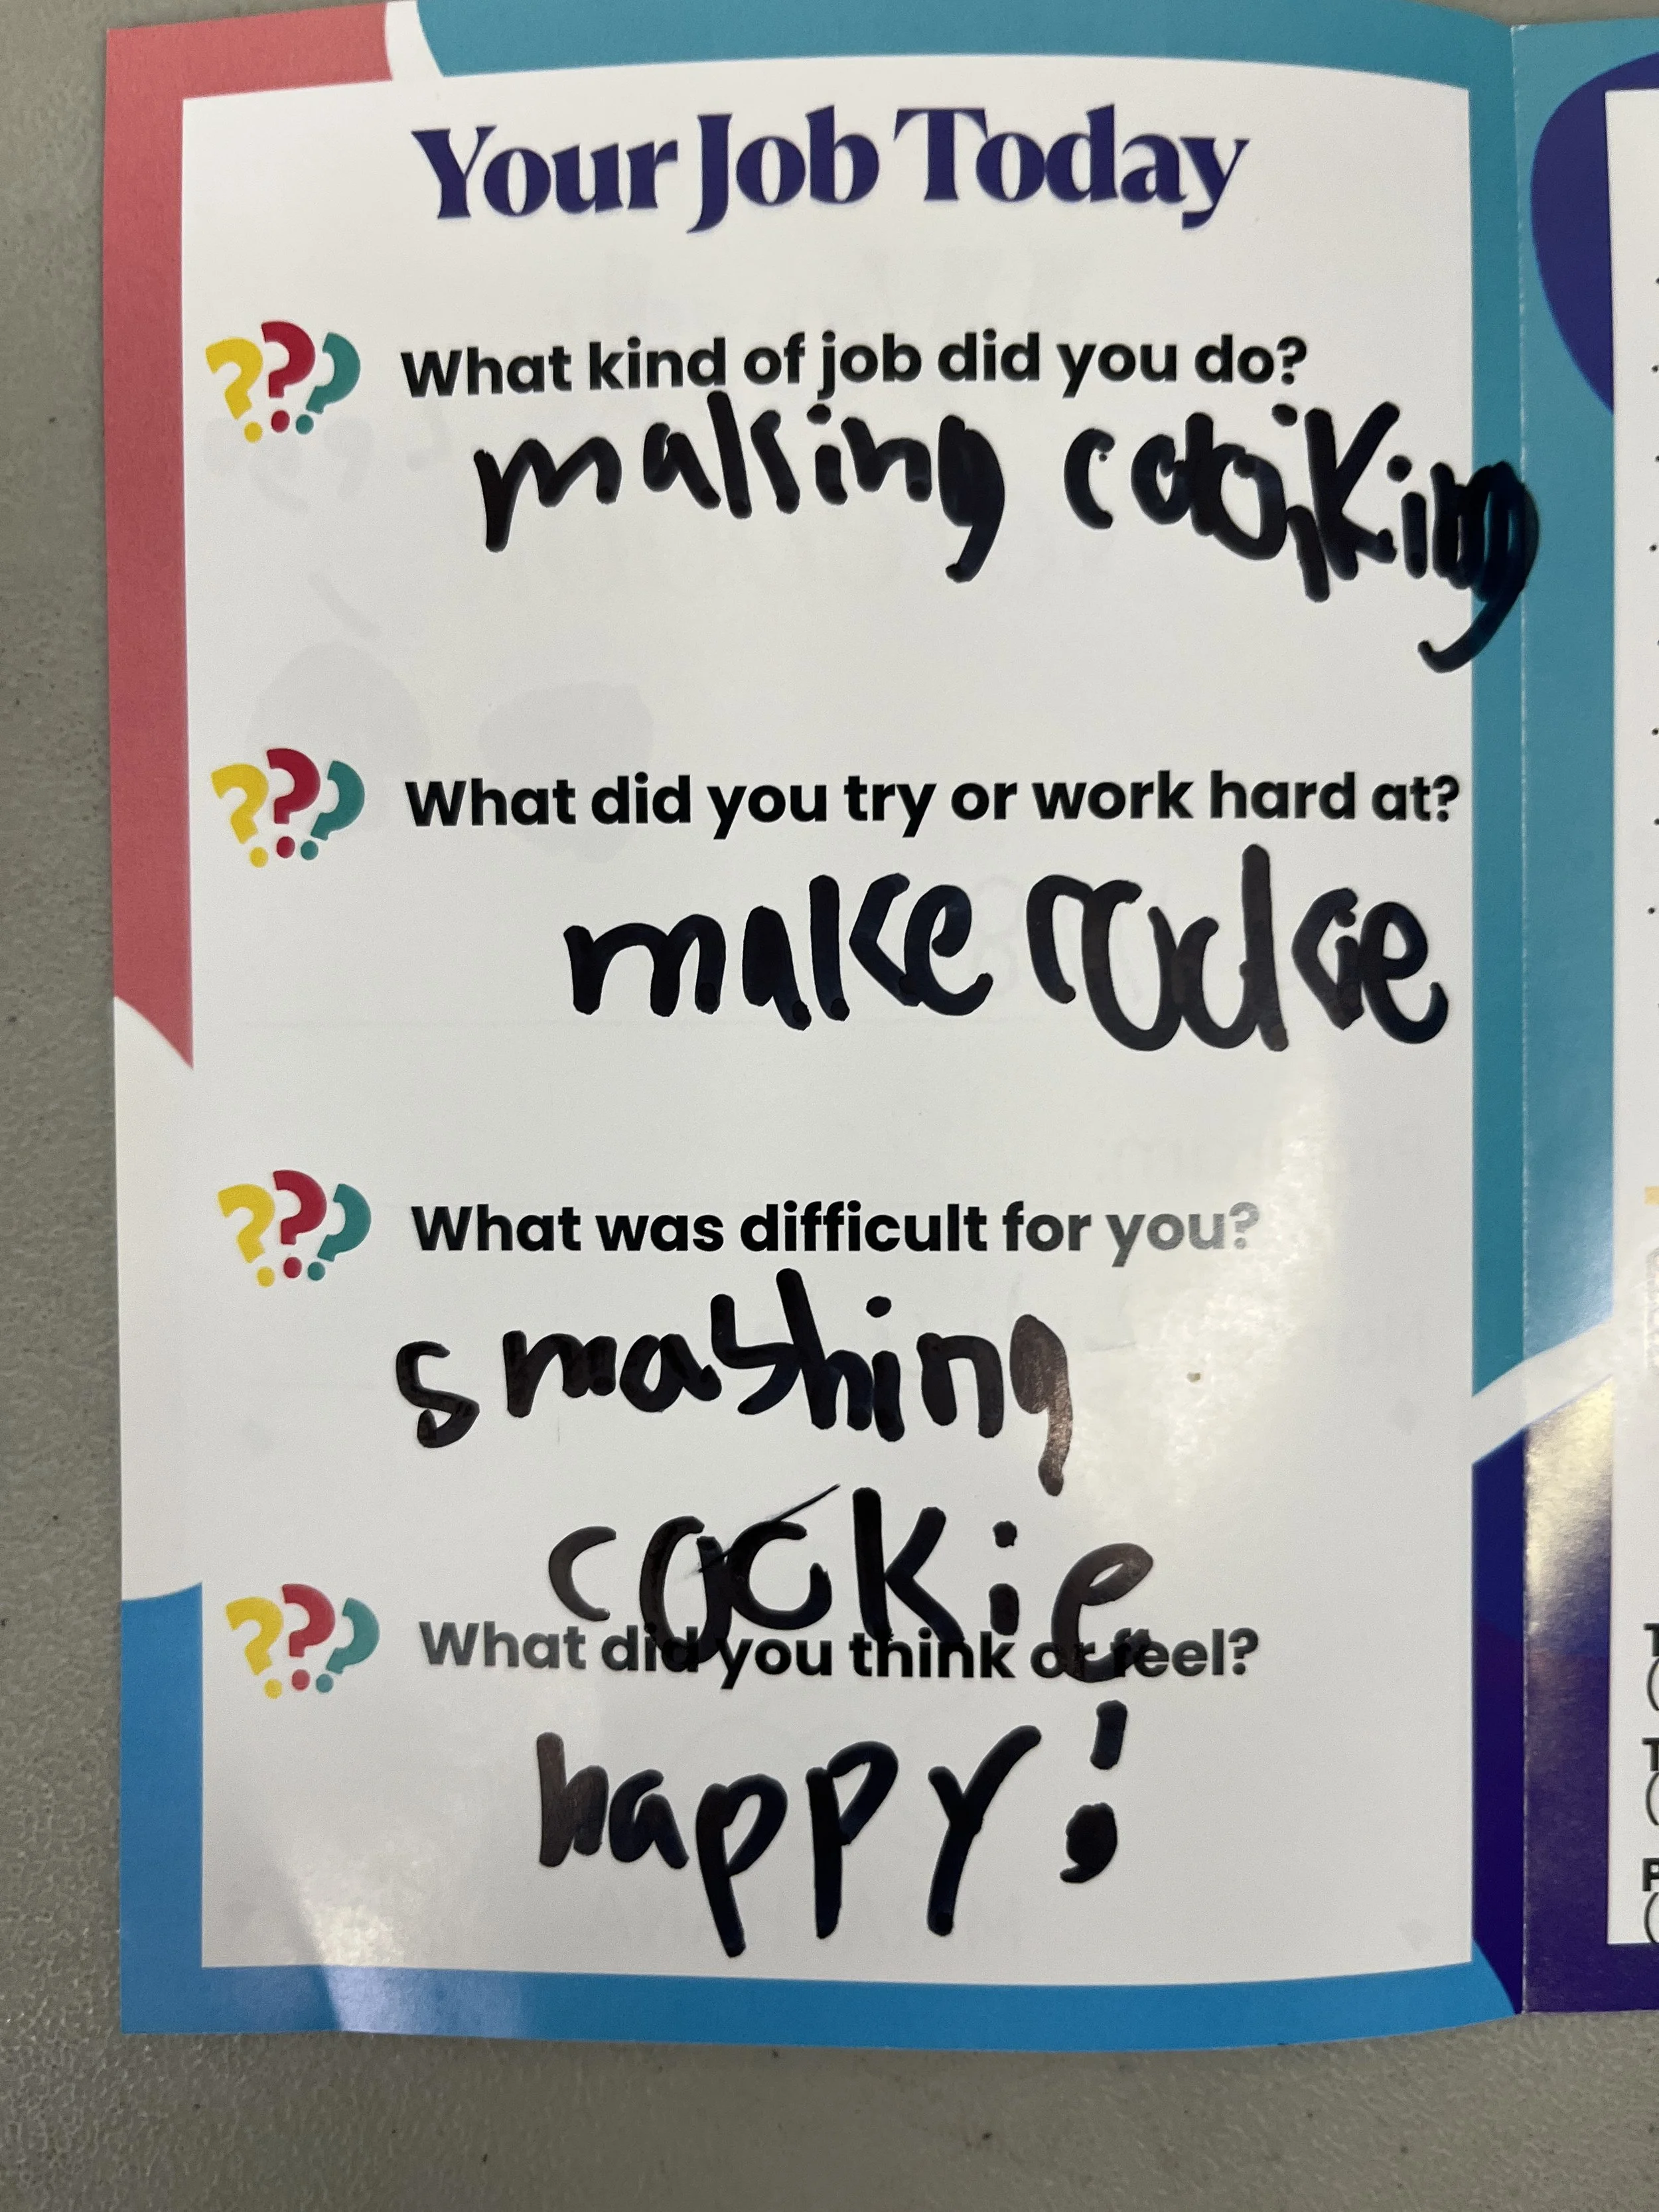 Your Job Today
What kind of job did you do?
making cooking
What did you try or work hard at?
make
What was difficult for you?
smashing
cookie
What did you think or feel?
happy!